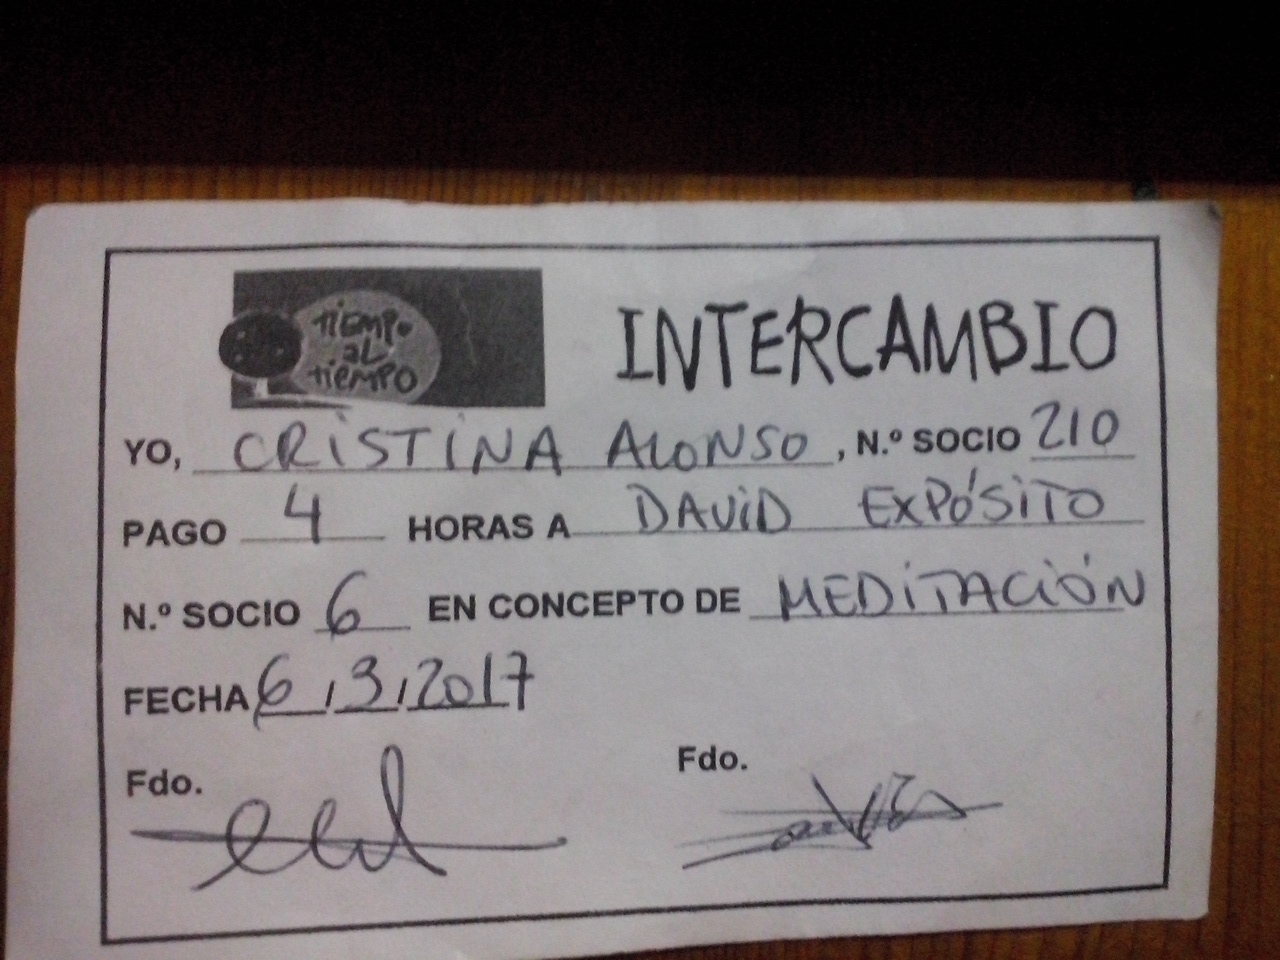 TIEMPO
AL
TIEMPO
INTERCAMBIO
YO, CRISTINA ALONSO, N.º SOCIO 210
PAGO 4 HORAS A DAVID EXPÓSITO
N.º SOCIO 6 EN CONCEPTO DE MEDITACIÓN
FECHA 6/3/2017
Fdo. Fdo.